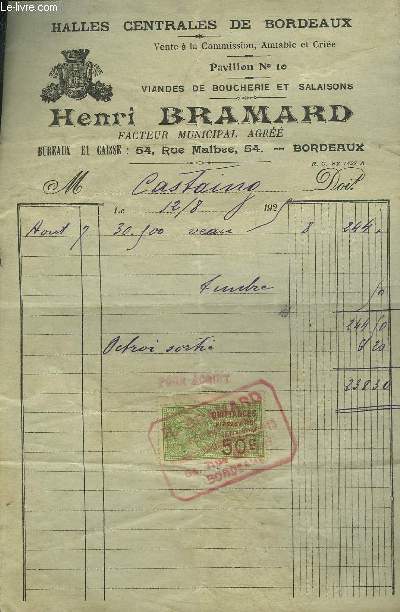 HALLES CENTRALES DE BORDEAUX
Vente à la Commission, Amiable et Criée
Pavillon No 10
VIANDES DE BOUCHERIE ET SALAISONS
Henri BRAMARD
FACTEUR MUNICIPAL AGRÉÉ
BUREAUX ET CAISSE : 54, Rue Malbec, 54. — BORDEAUX
M Castaing Doit
Le 12/8 192
Aout 7 30.500 veau 8 244
timbre 50
244 50
Octroi sortie 6 20
238 30
POUR ACQUIT
BRAMARD
QUITTANCES
50c
BORDEAUX